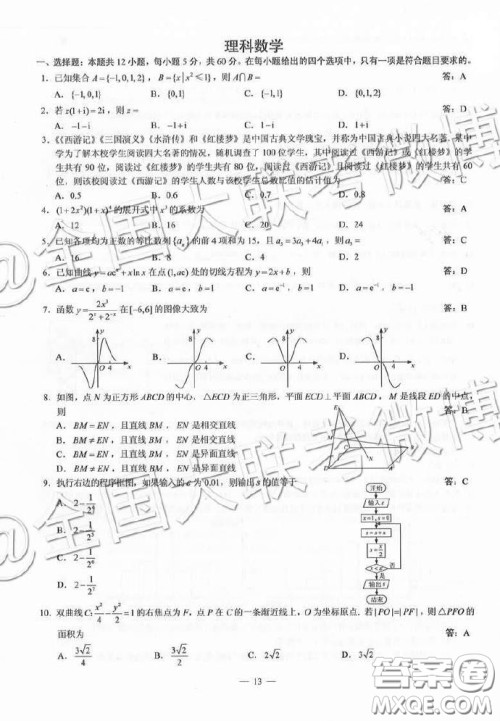 理科数学
一、选择题：本题共12小题，每小题5分，共60分。在每小题给出的四个选项中，只有一项是符合题目要求的。
1. 已知集合A={-1,0,1,2}，B={x|x²≤1}，则A∩B= 答：A
A. {-1,0,1} B. {0,1} C. {-1,1} D. {0,1,2}
2. 若z(1+i)=2i，则z= 答：D
A. -1-i B. -1+i C. 1-i D. 1+i
3. 《西游记》《三国演义》《水浒传》和《红楼梦》是中国古典文学瑰宝，并称为中国古典小说四大名著. 某中
学为了解本校学生阅读四大名著的情况，随机调查了100位学生，其中阅读过《西游记》或《红楼梦》的学
生共有90位，阅读过《红楼梦》的学生共有80位，阅读过《西游记》且阅读过《红楼梦》的学生共有60
位，则该校阅读过《西游记》的学生人数与该校学生总数比值的估计值为 答：C
A. 0.5 B. 0.6 C. 0.7 D. 0.8
4. (1+2x²)(1+x)⁴的展开式中x³的系数为 答：A
A. 12 B. 16 C. 20 D. 24
5. 已知各项均为正数的等比数列{aₙ}的前4项和为15，且a₅=3a₃+4a₁，则a₃= 答：C
A. 16 B. 8 C. 4 D. 2
6. 已知曲线y=aeˣ+xlnx在点(1,ae)处的切线方程为y=2x+b，则 答：D
A. a=e, b=-1 B. a=e, b=1 C. a=e⁻¹, b=1 D. a=e⁻¹, b=-1
7. 函数y=2x³/(2ˣ+2⁻ˣ)在[-6,6]的图像大致为 答：B
A. B. C. D.
8. 如图，点N为正方形ABCD的中心，△ECD为正三角形，平面ECD⊥平面ABCD，M是线段ED的中点，
则 答：B
A. BM=EN，且直线BM、EN是相交直线
B. BM≠EN，且直线BM、EN是相交直线
C. BM=EN，且直线BM、EN是异面直线
D. BM≠EN，且直线BM、EN是异面直线
9. 执行右边的程序框图，如果输入的ε为0.01，则输出s的值等于 答：C
A. 2-1/2⁴
B. 2-1/2⁵
C. 2-1/2⁶
D. 2-1/2⁷
开始
输入ε
x=1, s=0
s=s+x
x=x/2
x<ε
是
输出s
结束
10. 双曲线C:x²/4-y²/2=1的右焦点为F，点P在C的一条渐近线上，O为坐标原点. 若|PO|=|PF|，则△PFO的
面积为 答：A
A. 3√2/4 B. 3√2/2 C. 2√2 D. 3√2
— 13
@全国大联考微博
@全国大联考微博
答案圈
MXQE.COM